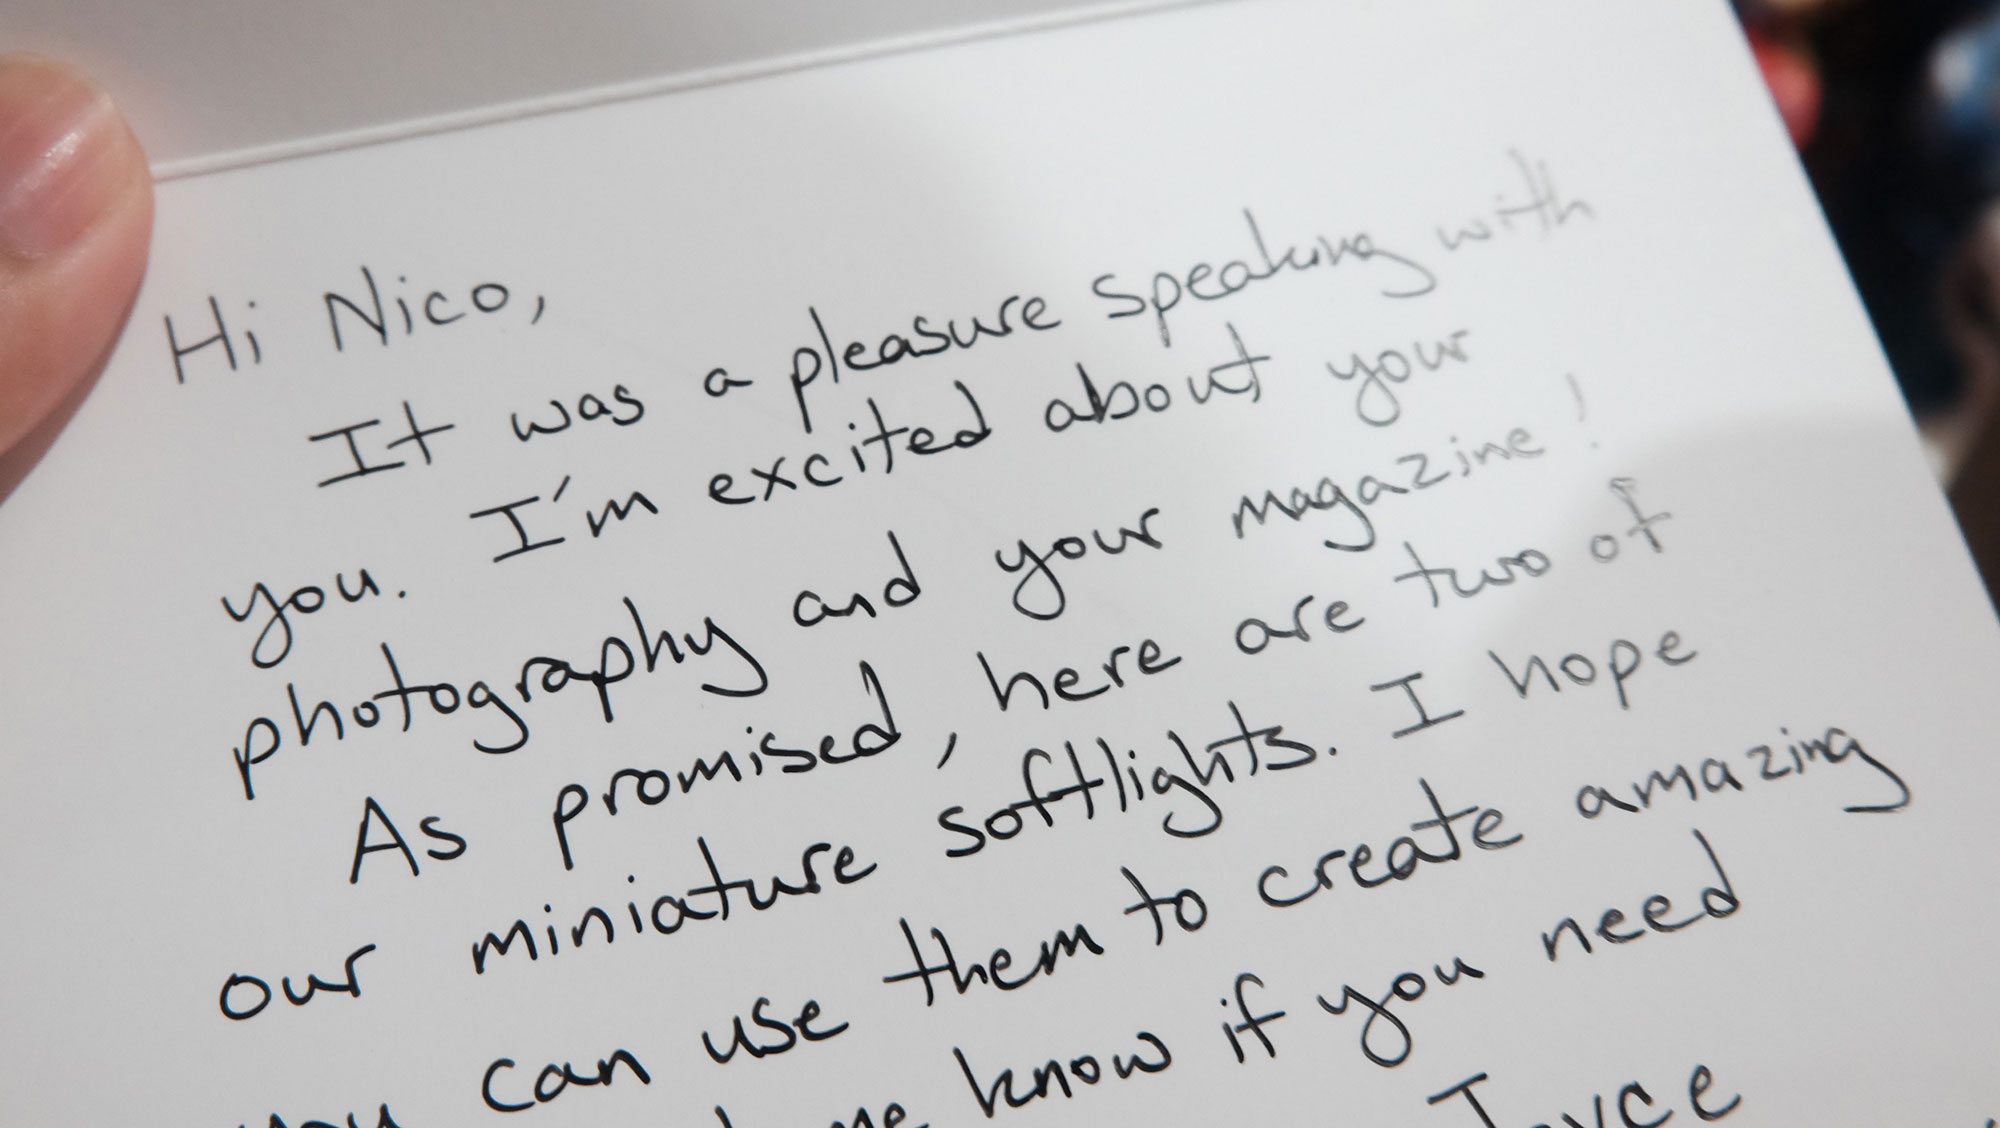 Hi Nico,
It was a pleasure speaking with
you. I'm excited about your
photography and your magazine!
As promised, here are two of
our miniature softlights. I hope
you can use them to create amazing
me know if you need
Joyce